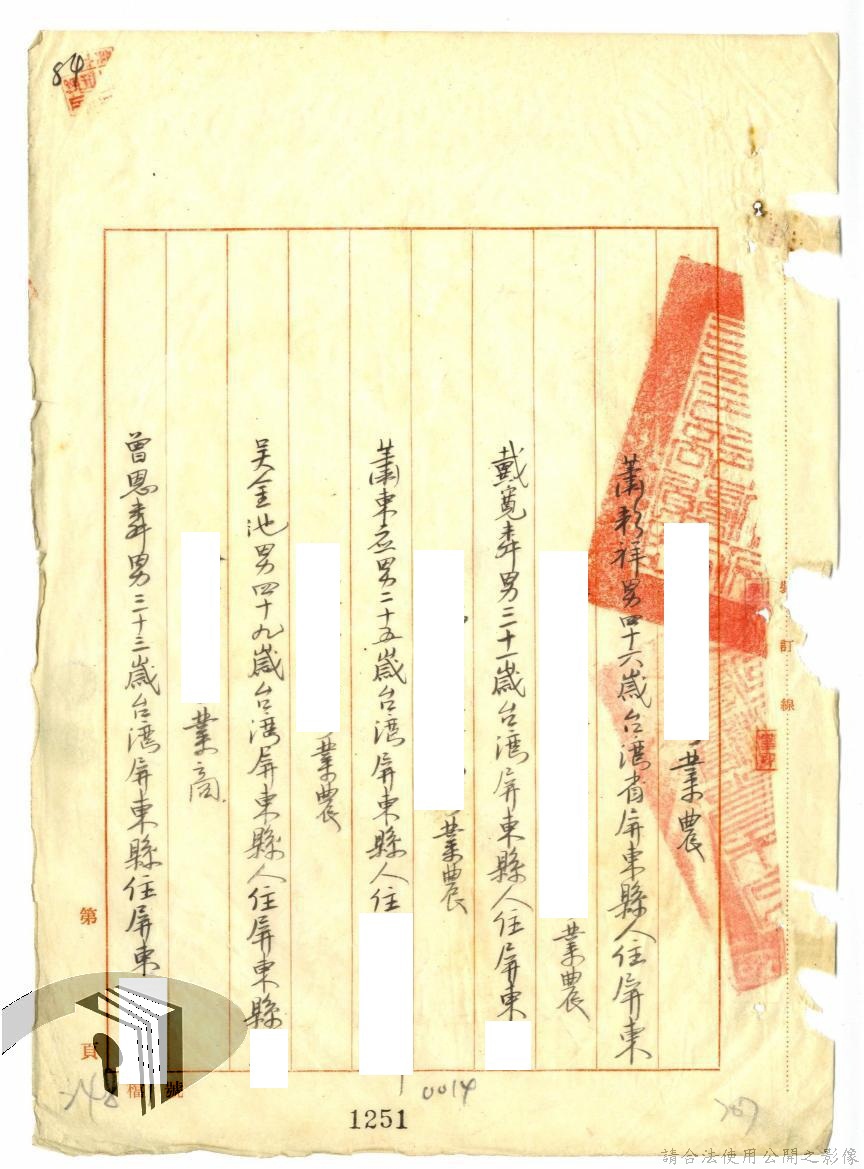 84
業農
蕭彩祥男四十六歲台灣省屏東縣人住屏東
業農
戴寬彝男三十一歲台灣屏東縣人住屏東
業農
蕭東玄男二十五歲台灣屏東縣人住
業農
吳金池男四十九歲台灣屏東縣人住屏東縣
業商
曾恩彝男三十三歲台灣屏東縣住屏東
訂
線
第
頁
檔
號
0014
1251
請合法使用公開之影像